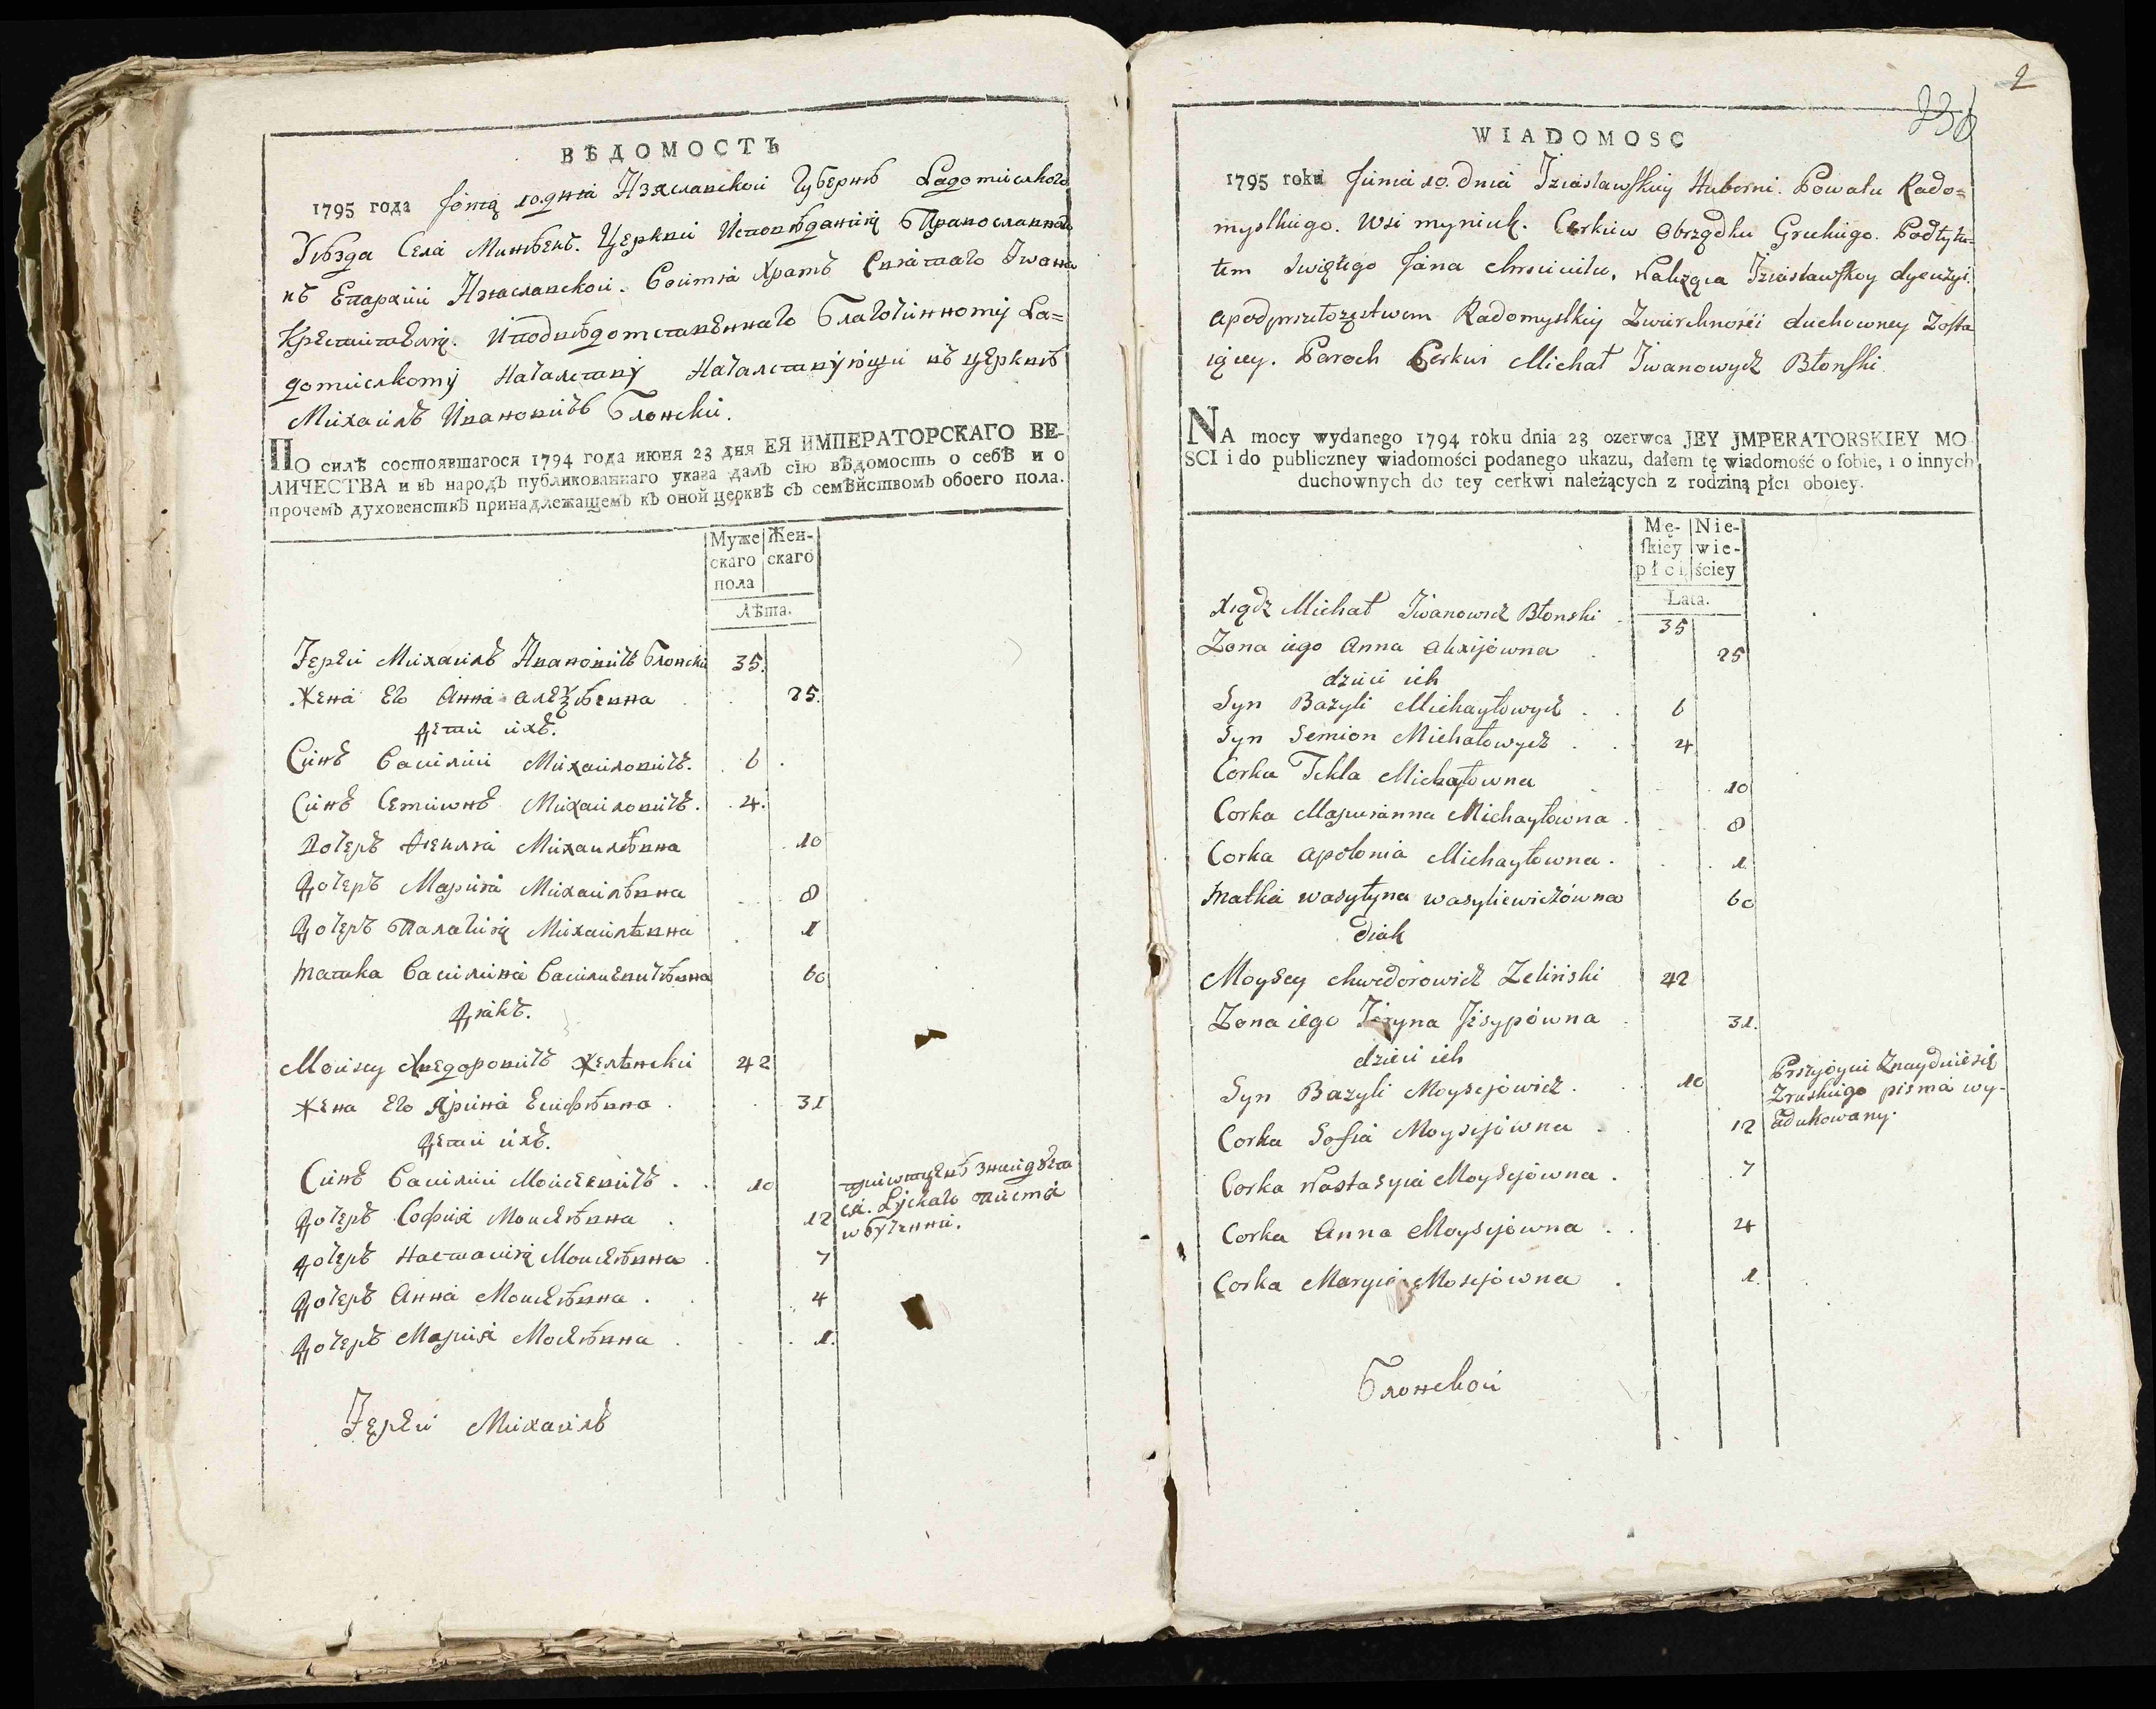 ВѢДОМОСТЬ
1795 года Іюнѧ 10. дня Изяславской Губернѣ Радомислкого
Уѣзда Села Минѣекъ. Церкви Исповѣданиѧ Православна
въ Епархіи Изяславской. Состоя Храмъ Святаго Іwана
Крестителѧ. Благочинному Ра=
домислкому Началству Началствуюши въ церквѣ
Михаилъ Ивановичъ Блонски.
ПО силѣ состоявшагося 1794 года июня 23 дня ЕЯ ИМПЕРАТОРСКАГО ВЕ-
ЛИЧЕСТВА и въ народъ публикованнаго указа далъ сію вѣдомость о себѣ и о
прочемъ духовенствѣ принадлежащемъ къ оной церквѣ съ семѣйствомъ обоего пола.
Муже Жен-
скаго скаго
пола
Лѣта.
Іерей Михаилъ Ивановичъ Блонски 35.
Жена Его Анна Алеѯѣевна 25.
Дети ихъ.
Синъ Василии Михаиловичъ. 6
Синъ Семиwнъ Михаиловичъ. 4.
Дочеръ Михаилѣвна 10
Дочеръ Мария Михаилѣвна 8
Дочеръ Михаилѣвна 1
Матка Василина Василиевичѣвна 60
Дякъ.
Моисеу Хведоровичъ Желѣнски 42
Жена Его Ярина Есифѣвна 31
Дети ихъ.
Синъ Василии Моисеевичъ. 10
Дочеръ София Моисеѣвна 12
Дочеръ Настасиѧ Моисеѣвна 7
Дочеръ Анна Моисеѣвна. 4
Дочеръ Мария Мосеѣвна 1.
при wтцевѣ знайдует
ся. Руского писма
wбучении.
Іерей Михаилъ
2
236
WIADOMOSC
1795 roku Junia 10. dnia Iziaslawskiy Huberni. Powatu Rado=
myslkiego. Wsi myniek. Cerkiew Obrządku Greckiego. Podtytu=
tem Swiętego Jana chrsciciela, Należąca Iziastawskoy dyeczyi.
apodprzełożęstwem Radomyslkiy Zwierchności duchowney Zosta
iącey. Paroch Cerkwi Michał Iwanowycz Błonski
NA mocy wydanego 1794 roku dnia 23 czerwca JEY JMPERATORSKIEY MO
SCI i do publiczney wiadomości podanego ukazu, dałem tę wiadomość o sobie, i o innych
duchownych do tey cerkwi należących z rodziną płci oboiey.
Mę- Nie-
skiey wie-
płci ściey
Lata.
Xiądz Michał Iwanowicz Błonski 35
Zona iego Anna Alexijowna 25
dzieci ich
Syn Bazyli Michayłowycz 6
Syn Semion Michałowycz 4
Corka Tekla Michałowna 10
Corka Maryianna Michayłowna 8
Corka Apolonia Michayłowna. 1
Matka wasyłyna wasyliewiczówna 60
Diak
Moysey chwedorowicz Zelinski 42
Zona iego Iryna Jesypówna 31.
dzieci ich
Syn Bazyli Moysejowicz. 10
Corka Sofia Moysejówna 12
Corka Nastasyia Moysejówna. 7
Corka Anna Moysejówna 4
Corka Maryia Mosejówna 1.
Przyoycu Znayduiesię
Zruskiego pisma wy-
Edukowany.
Блонской